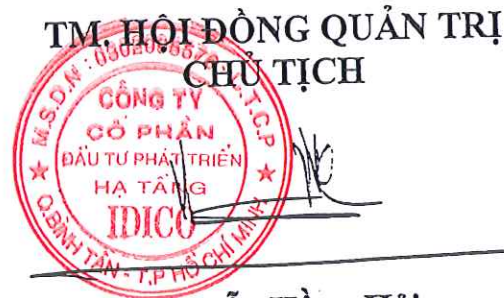 TM. HỘI ĐỒNG QUẢN TRỊ
CHỦ TỊCH
M.S.D.N: C.T.C.P
CÔNG TY
CỔ PHẦN
ĐẦU TƯ PHÁT TRIỂN
HẠ TẦNG
IDICO
Q.BÌNH TÂN - T.P HỒ CHÍ MINH